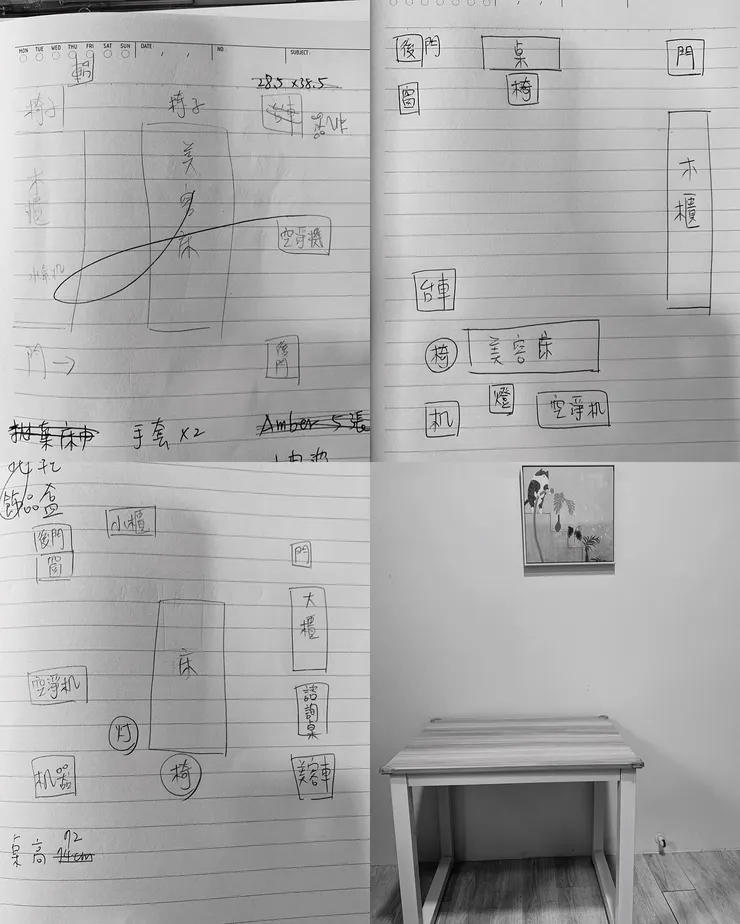 MON TUE WED THU FRI SAT SUN DATE NO. SUBJECT:
28.5 x 38.5
椅子 椅子 台車
木櫃
美容床
空淨機
水氧机
門→
後門
手套 x2
Amber 5張
後門
桌
門
窗
椅
木櫃
台車
椅
美容床
燈
机
空淨机
飾品盒
小櫃
後門
窗
門
大櫃
床
空淨机
諮詢桌
灯
机器
椅
美容車
桌高 72
74cm